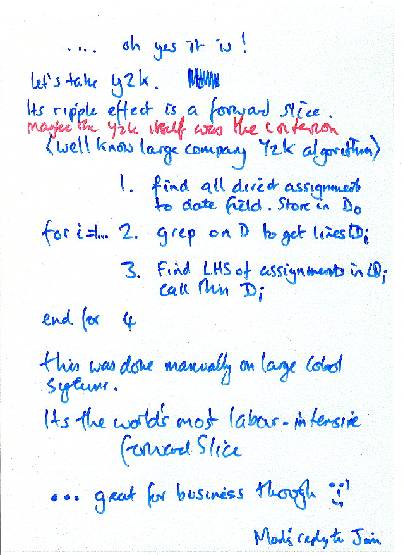 .... oh yes it is!
let's take y2k.
Its ripple effect is a forward slice.
maybe the y2k itself was the criterion
(well know large company Y2k algorithm)
1. find all direct assignments
to date field. Store in D0
for i=1... 2. grep on D to get lines Di
3. Find LHS of assignments in Di
call this Di
end for 4
this was done manually on large Cobol
systems.
Its the world's most labour-intensive
forward Slice
... great for business though
Mark's reply to Jain